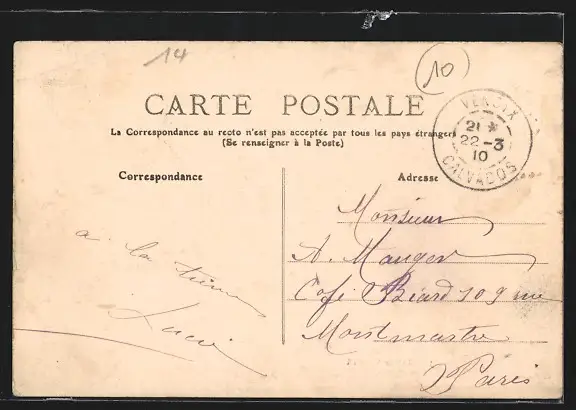 14
10
CARTE POSTALE
La Correspondance au recto n'est pas acceptée par tous les pays étrangers
(Se renseigner à la Poste)
Correspondance
Adresse
VENOIX
21 *
22 - 3
10
CALVADOS
a la
Lucie
Monsieur
A. Mauger
Café Biard 109 rue
Montmartre
Paris